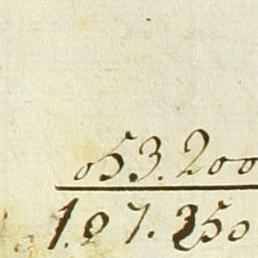 053.200
1.07.350